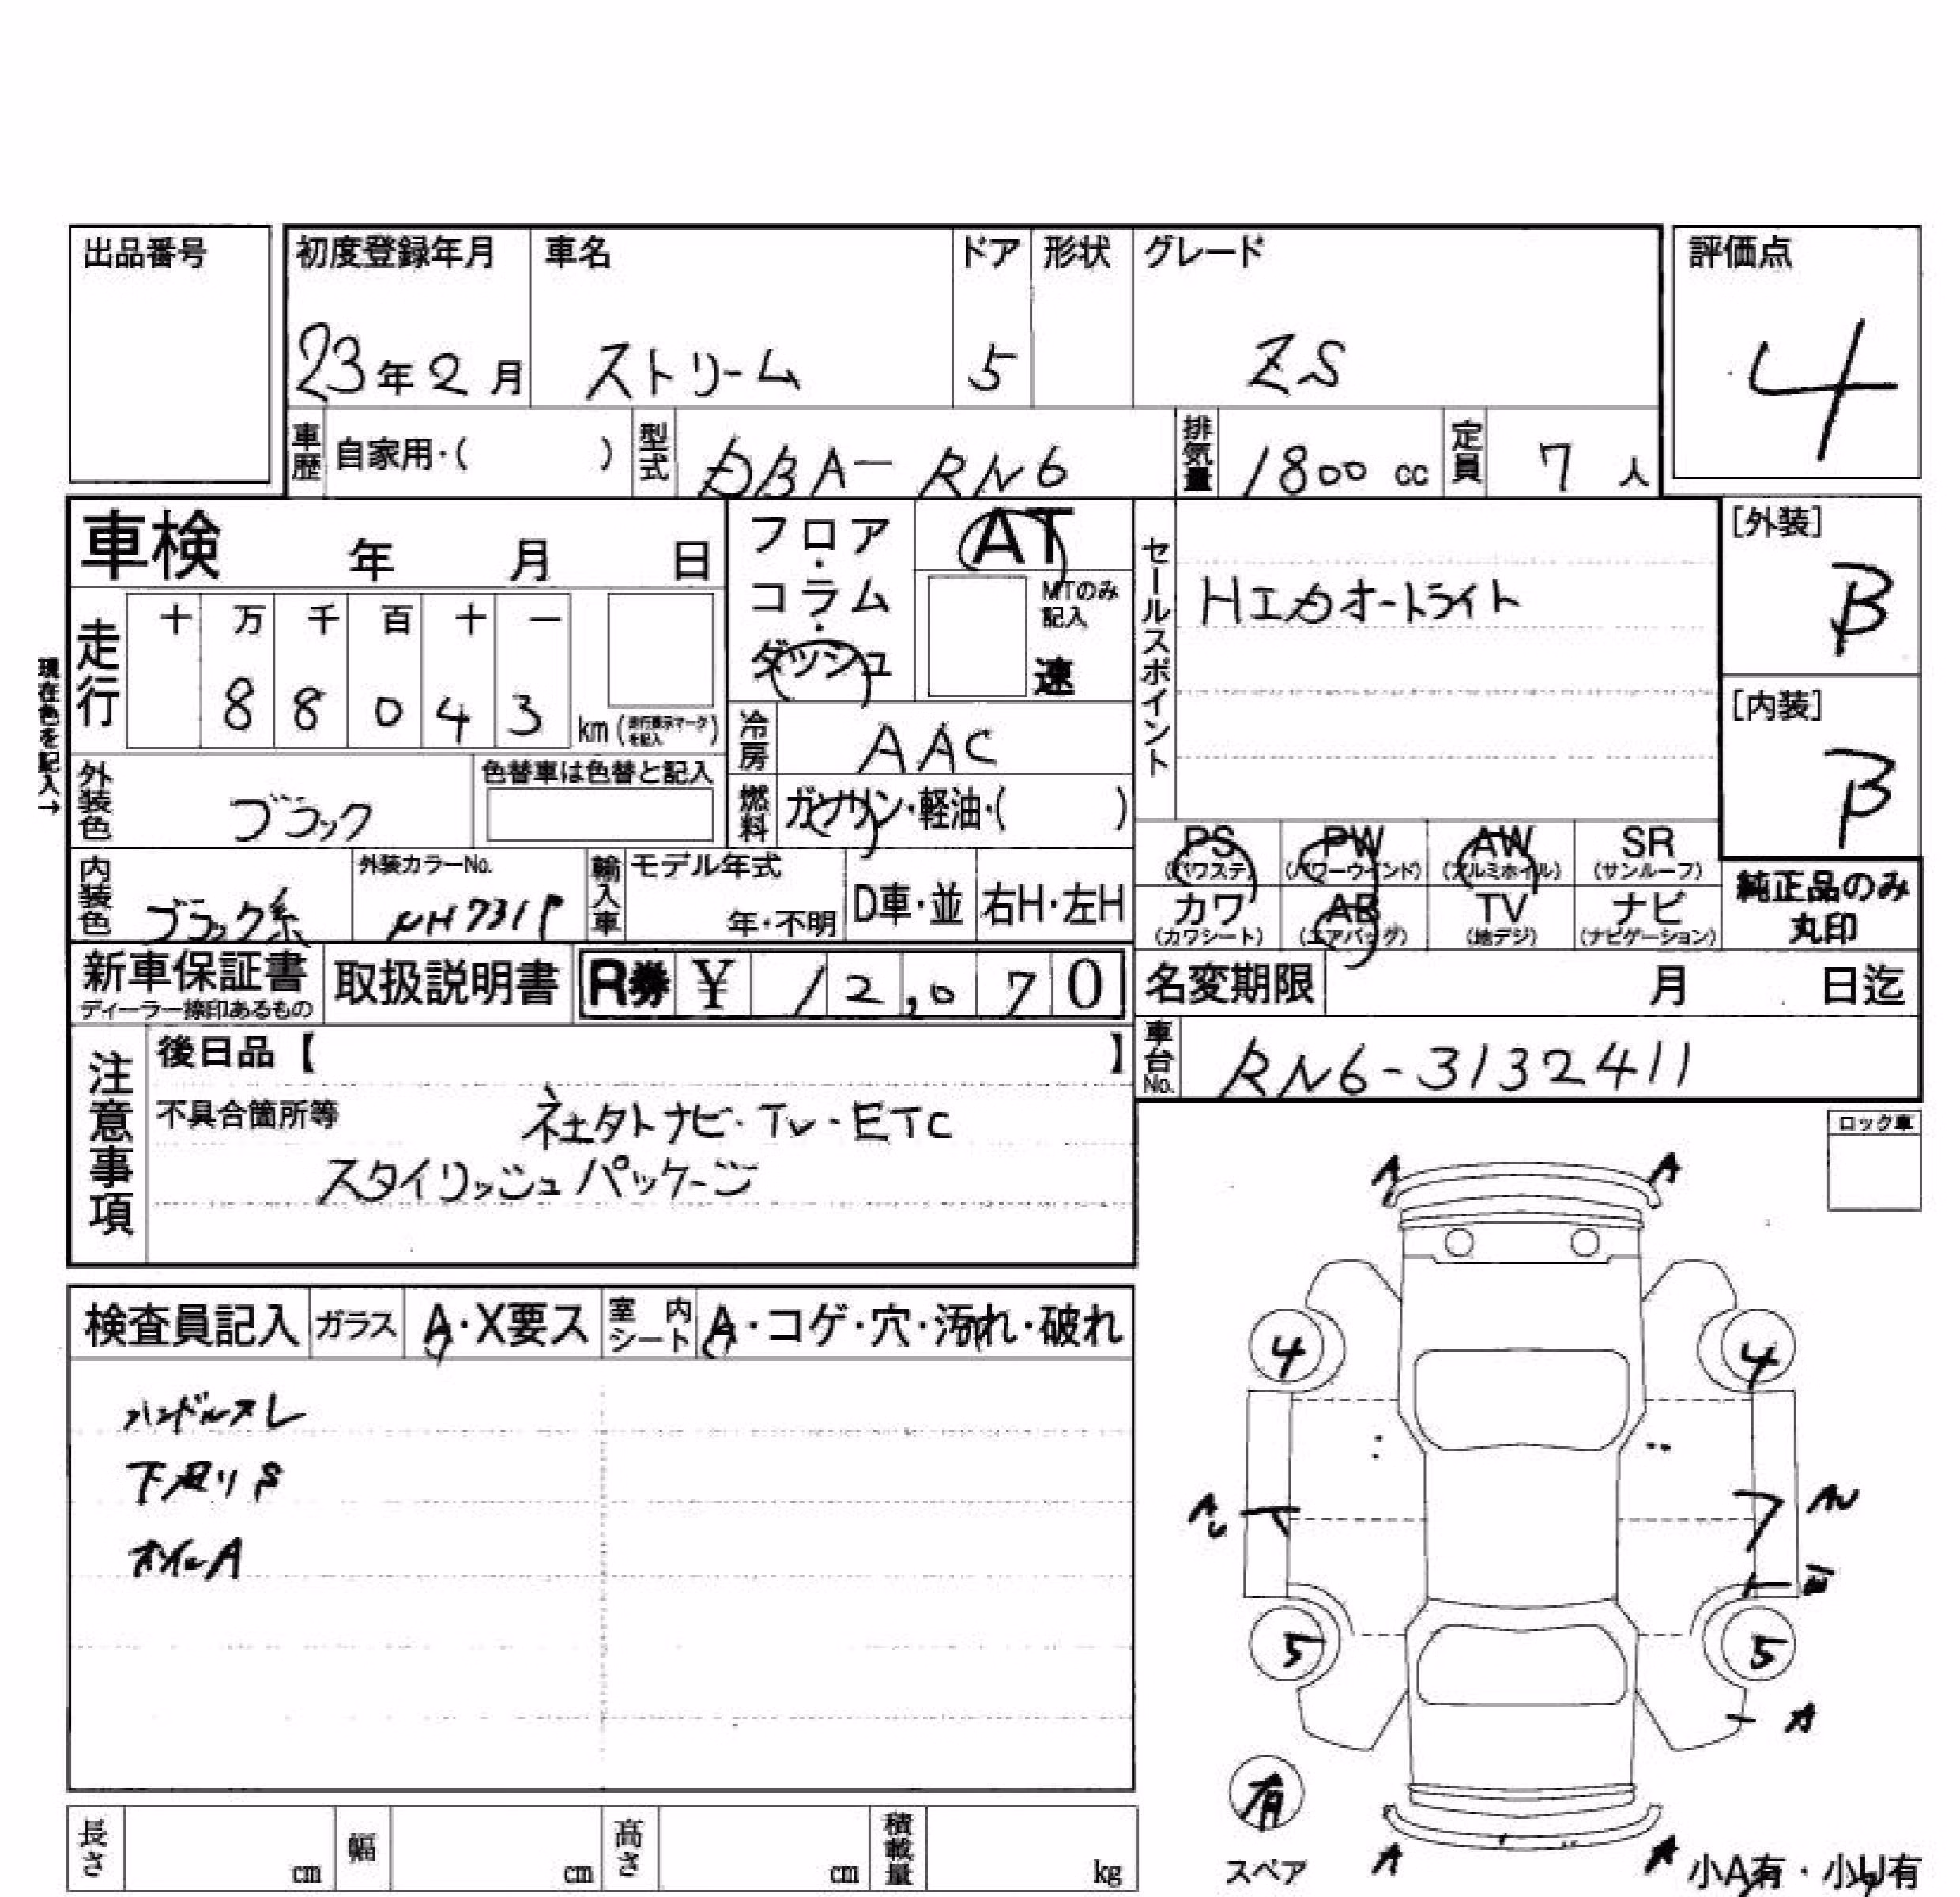 出品番号
初度登録年月 車名 ドア 形状 グレード 評価点
23年2月 ストリーム 5 ZS 4
車歴 自家用・( ) 型式 DBA-RN6 排気量 1800cc 定員 7人
車検 年 月 日
フロア・コラム・ダッシュ
AT
MTのみ記入
速
走行 十 万 千 百 十 一
8 8 0 4 3 km (走行表示マークを記入)
現在色を記入→
冷房 AAC
外装色 ブラック 色替車は色替と記入
燃料 ガソリン・軽油・( )
セールスポイント
HIDオートライト
[外装]
B
[内装]
B
PS (パワステ) PW (パワーウインド) AW (アルミホイル) SR (サンルーフ)
カワ (カワシート) AB (エアバッグ) TV (地デジ) ナビ (ナビゲーション)
純正品のみ丸印
内装色 ブラック系 外装カラーNo. NH731P 輸入車 モデル年式 年・不明 D車・並 右H・左H
新車保証書 ディーラー捺印あるもの 取扱説明書 R券 ¥ 12,070
名変期限 月 日迄
車台No. RN6-3132411
注意事項
後日品【 】
不具合箇所等 社外ナビ・TV・ETC
スタイリッシュパッケージ
ロック車
検査員記入 ガラス A・X要ス 室内シート A・コゲ・穴・汚れ・破れ
ハンドルスレ
下廻りS
オイルA
A A
4 4
AU AU
5 5
A
有
スペア
A A
小A有・小U有
長さ cm 幅 cm 高さ cm 積載量 kg